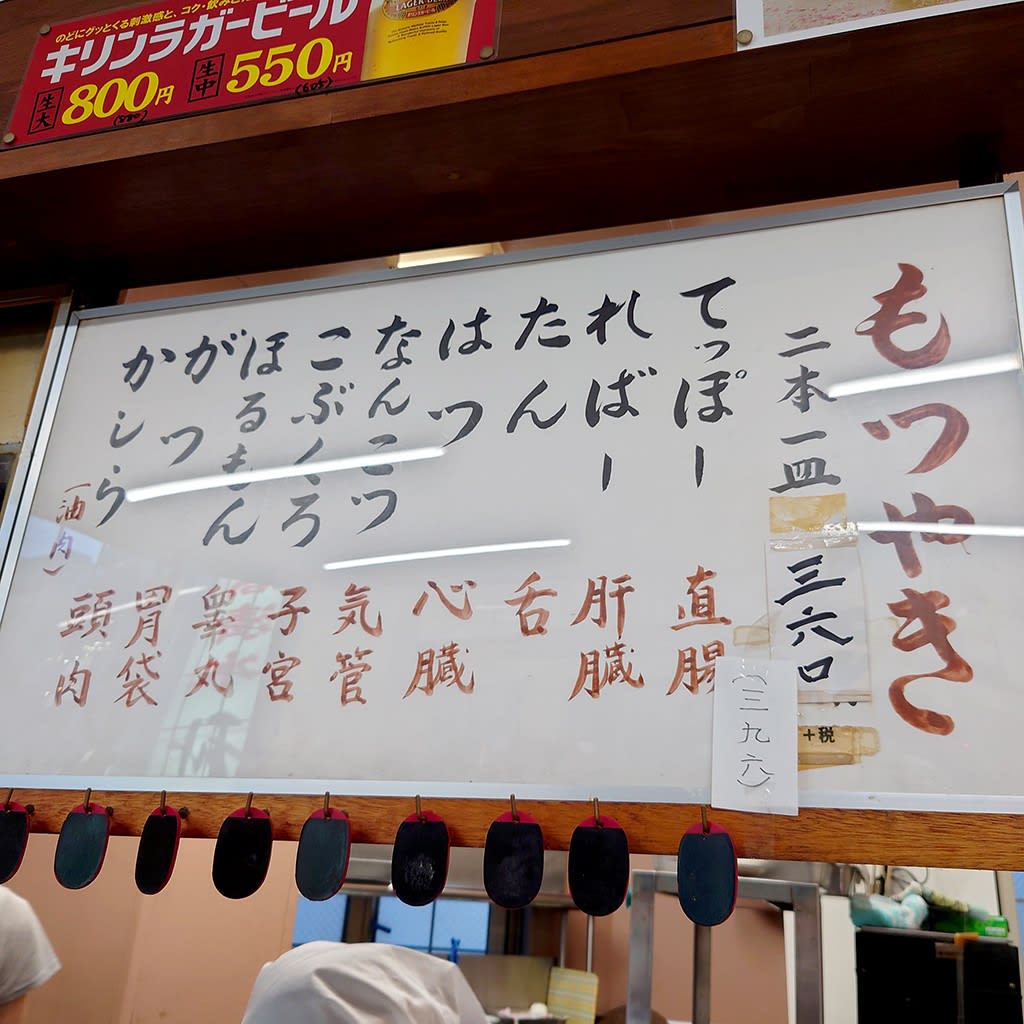 のどにグッとくる刺激感と、コク・飲みご
キリンラガービール
生大 800円 (880)
生中 550円 (605)
LAGER BEER
もつやき
二本一皿 三六〇
+税
(三九六)
てっぽー 直腸
ればー 肝臓
たん 舌
はつ 心臓
なんこつ 気管
こぶくろ 子宮
ほるもん 睾丸
がつ 胃袋
かしら (油肉) 頭肉